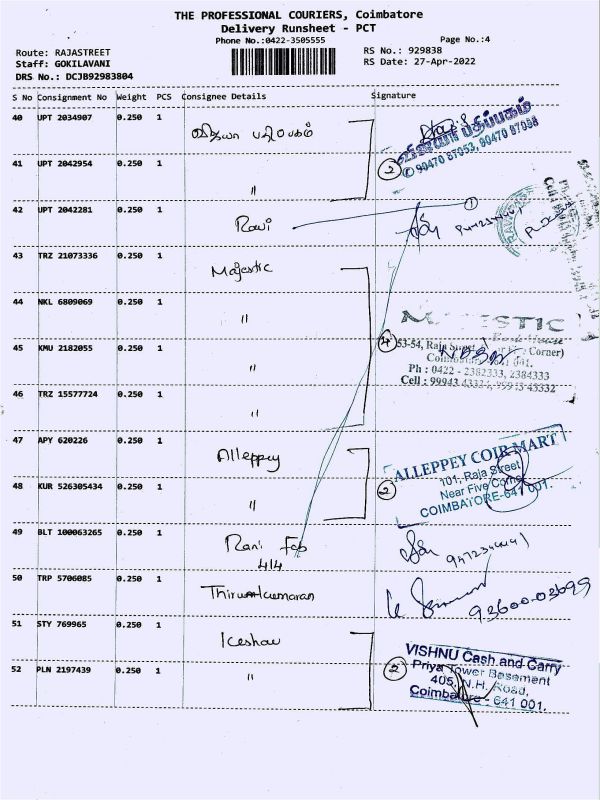 THE PROFESSIONAL COURIERS, Coimbatore
Delivery Runsheet - PCT
Phone No.:0422-3505555 Page No.:4
Route: RAJASTREET RS No.: 929838
Staff: GOKILAVANI RS Date: 27-Apr-2022
DRS No.: DCJB92983804
S No Consignment No Weight PCS Consignee Details Signature
40 UPT 2034907 0.250 1 விஜயா பதிப்பகம்
விஜயா பதிப்பகம்
✆ 90470 87053, 90470 87058
2
41 UPT 2042954 0.250 1 "
42 UPT 2042281 0.250 1 Ravi 1
43 TRZ 21073336 0.250 1 Majestic
44 NKL 6809069 0.250 1 "
MAJESTIC
Book House
45 KMU 2182055 0.250 1 " 4
53-54, Raja Street, Corner)
Coimbatore - 641 001.
Ph : 0422 - 2382333, 2384333
Cell : 99943 43332, 99943 43332
46 TRZ 15577724 0.250 1 "
47 APY 620226 0.250 1 Alleppey
ALLEPPEY COIR MART
101, Raja Street
Near Five Corner
COIMBATORE-641 001.
48 KUR 526305434 0.250 1 " 2
49 BLT 100063265 0.250 1 Rani Fab
414
50 TRP 5706085 0.250 1 Thirumkumaran
93600-03699
51 STY 769965 0.250 1 Keshav
VISHNU Cash and Carry
Priya Tower Basement
405, N.H. Road,
Coimbatore - 641 001.
52 PLN 2197439 0.250 1 " 2